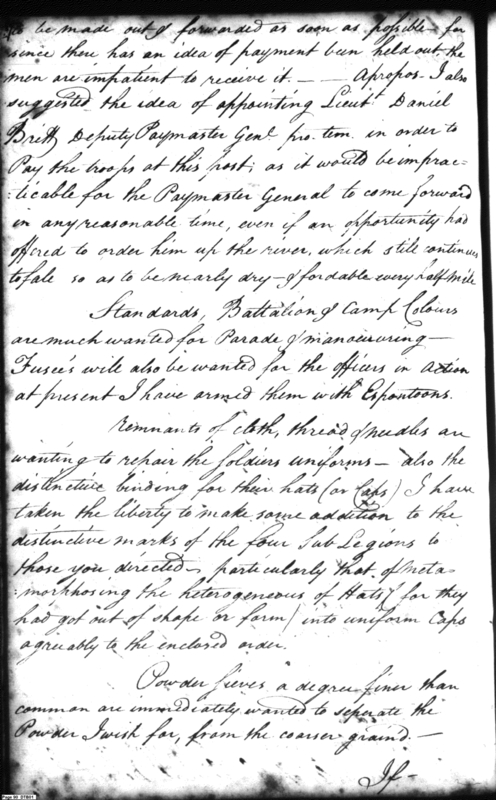 to be made out & forwarded as soon as possible - for
since there has an idea of payment been held out, the
men are impatient to receive it. — — Apropos - I also
suggested the idea of appointing Lieut.t Daniel
Britt Deputy Paymaster Genl. pro. tem. in order to
Pay the troops at this post; as it would be imprac=
=ticable for the Paymaster General to come forward
in any reasonable time, even if an opportunity had
offered to order him up the river, which still continues
to fale so as to be nearly dry - & fordable every half Mile
Standards, Battalion & Camp Colours
are much wanted for Parade & manoeuvring —
Fusee's will also be wanted for the officers in Action
at present I have armed them with Espontoons.
Remnants of cloth, thread & needles are
wanting to repair the Soldiers uniforms - also the
distinctive binding for their hats (or Caps) I have
taken the liberty to make some addition to the
distinctive marks of the four Sub Legions to
those you directed - particularly that of meta=
=morphosing the heterogeneous of Hats, (for they
had got out of shape or form) into uniform Caps
agreeably to the enclosed order.
Powder sieves a degree finer than
common are immediately wanted to seperate the
Powder I wish for, from the coarser graind. —
If -